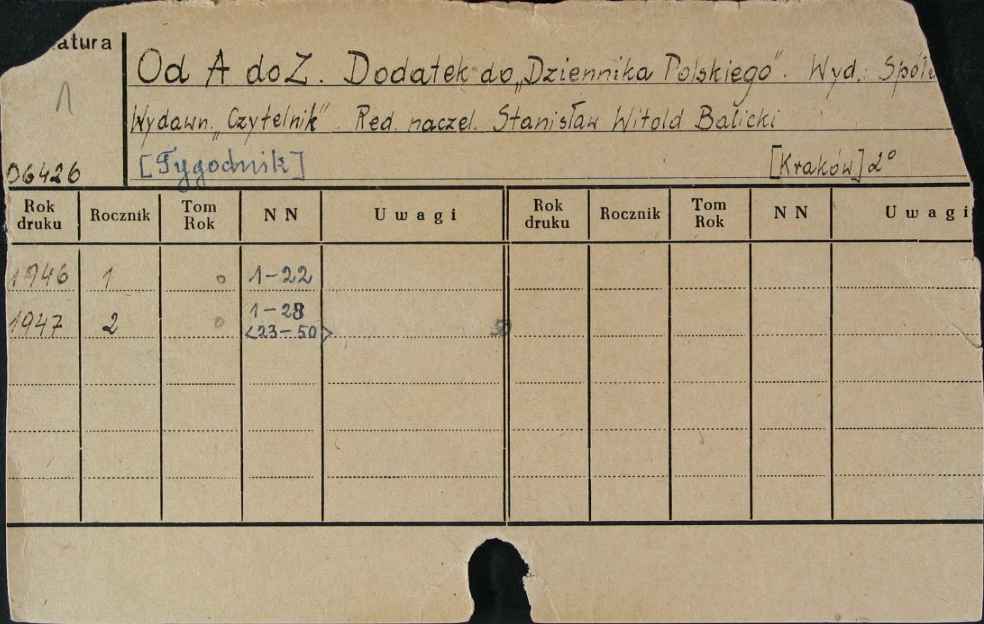 atura
Od A do Z. Dodatek do „Dziennika Polskiego". Wyd. Spół
1
Wydawn. „Czytelnik". Red. naczel. Stanisław Witold Balicki
06426 [Tygodnik] [Kraków] 2°
Rok druku Rocznik Tom Rok N N Uwagi Rok druku Rocznik Tom Rok N N Uwagi
1946 1 0 1-22
1947 2 0 1-28
<23-50> 50